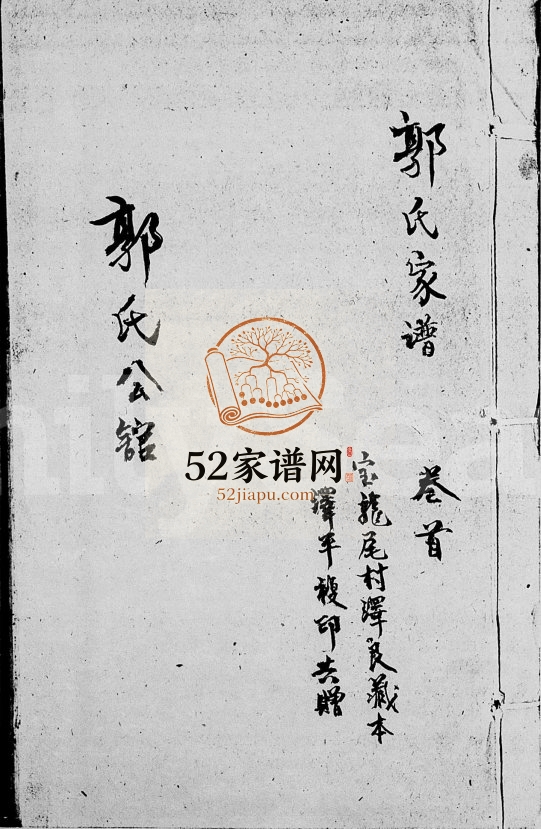 郭氏家谱 卷首
宝龍尾村澤良藏本
澤平複印共贈
郭氏公館
52家谱网
52jiapu.com